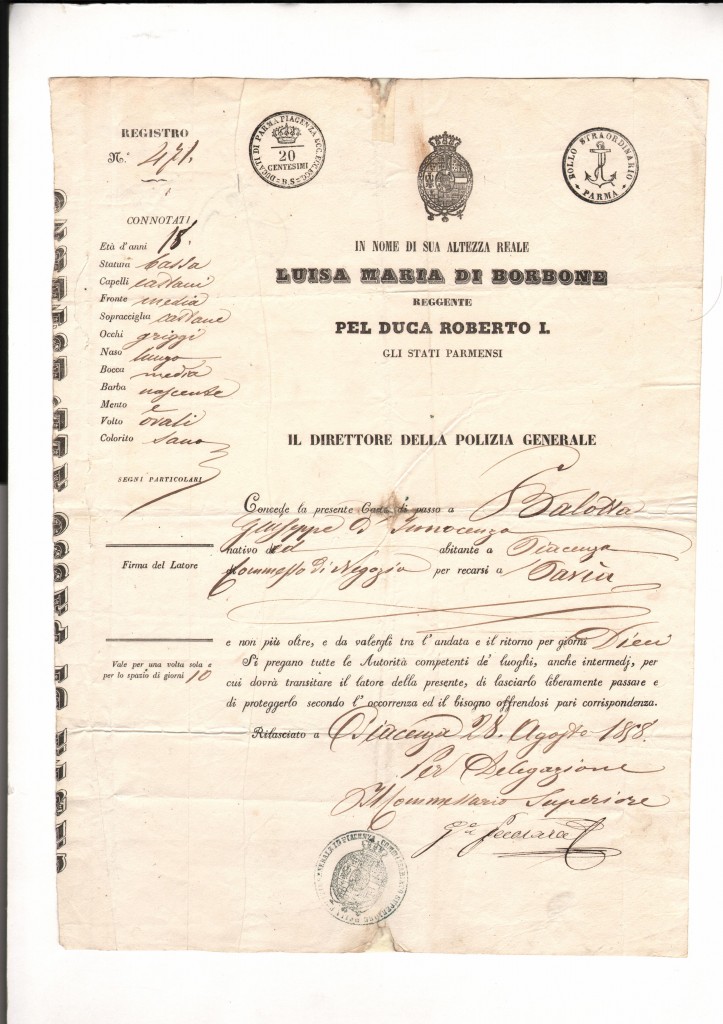 REGISTRO
N.° 471.
DUCATI DI PARMA PIACENZA ECC. ECC. ECC.
20
CENTESIMI
BOLLO STRAORDINARIO
PARMA
CONNOTATI
Età d'anni 18.
Statura bassa
Capelli castani
Fronte media
Sopracciglia castane
Occhi griggi
Naso lungo
Bocca media
Barba nascente
Mento e
Volto ovali
Colorito sano
SEGNI PARTICOLARI
Firma del Latore
Vale per una volta sola e
per lo spazio di giorni 10
IN NOME DI SUA ALTEZZA REALE
LUISA MARIA DI BORBONE
REGGENTE
PEL DUCA ROBERTO I.
GLI STATI PARMENSI
IL DIRETTORE DELLA POLIZIA GENERALE
Concede la presente Carta di passo a Balotta
Giuseppe d' Innocenzo
nativo ed abitante a Piacenza
Commesso di Negozio per recarsi a Pavia
e non più oltre, e da valergli tra l'andata e il ritorno per giorni Dieci
Si pregano tutte le Autorità competenti de' luoghi, anche intermedj, per
cui dovrà transitare il latore della presente, di lasciarlo liberamente passare e
di proteggerlo secondo l'occorrenza ed il bisogno offrendosi pari corrispondenza.
Rilasciato a Piacenza 28. Agosto 1858.
Per Delegazione
Il Commessario Superiore